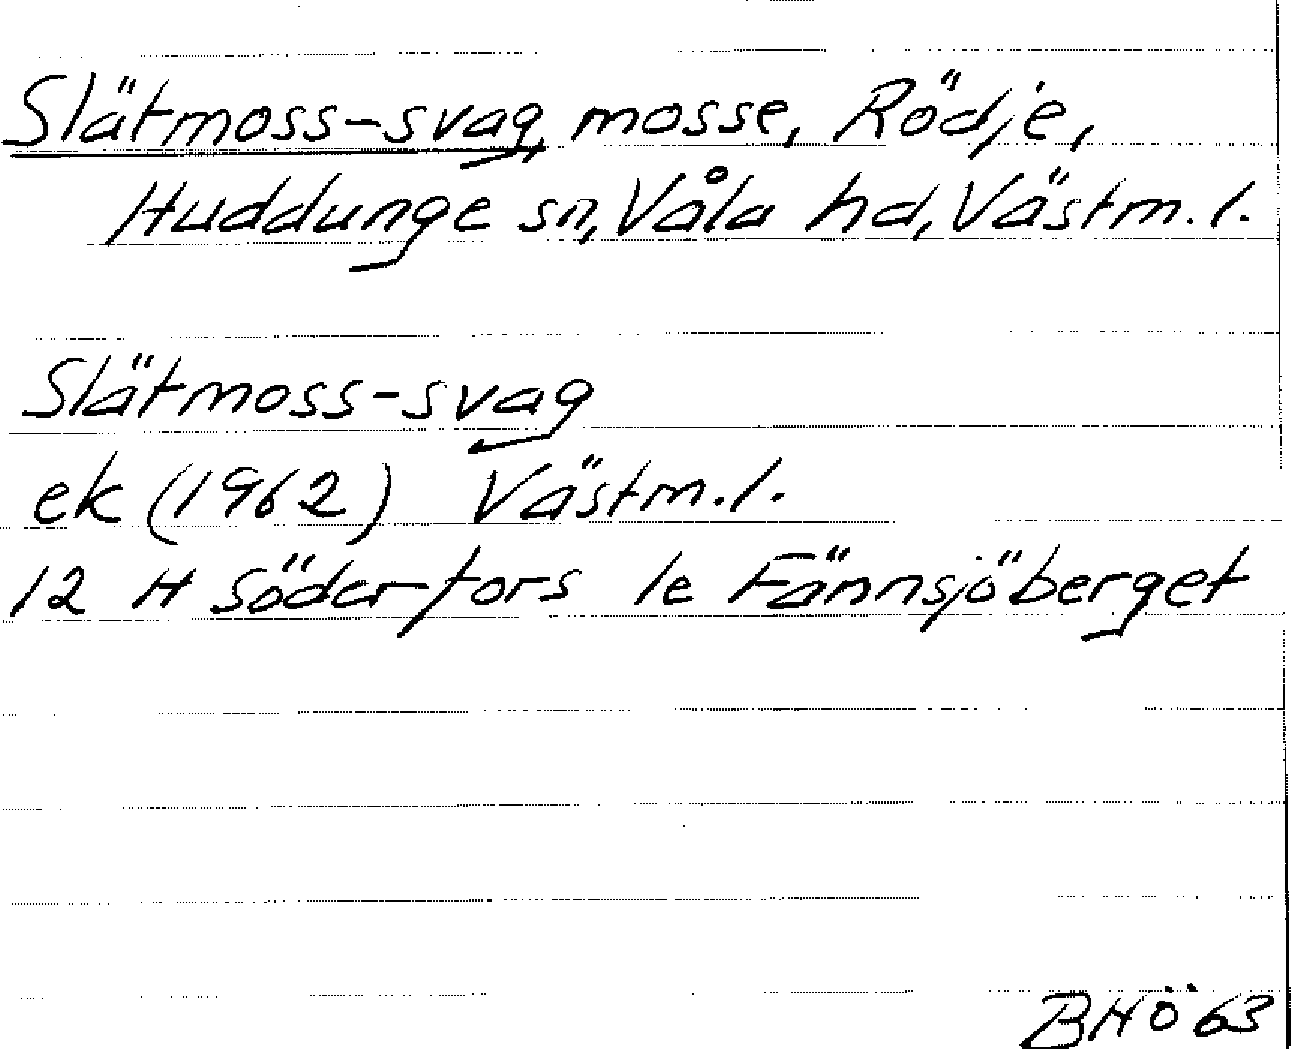 Slätmoss-svag, mosse, Rödje,
Huddunge sn, Våla hd, Västm. l.
Slätmoss-svag
ek (1962) Västm. l.
12 H Söderfors 1e Fännsjöberget
BHÖ 63